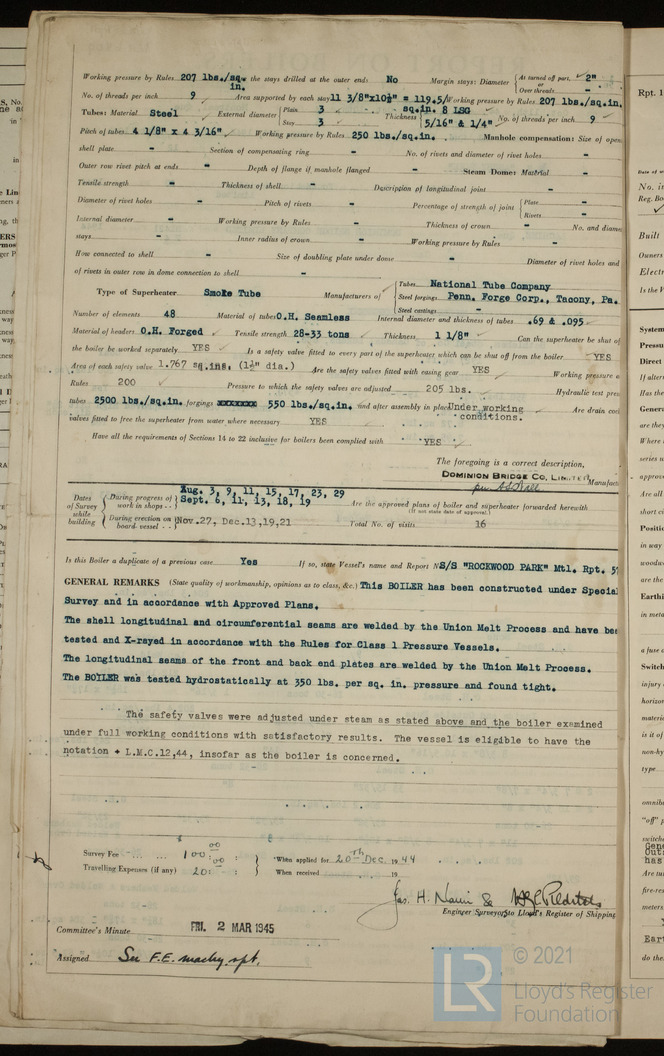 Working pressure by Rules 207 lbs./sq. in. Are the stays drilled at the outer ends No Margin stays: Diameter { As turned off part, or Over threads 2"
No. of threads per inch 9 Area supported by each stay 11 3/8"x10½" = 119.5/ sq.in. Working pressure by Rules 207 lbs./sq.in.
Tubes: Material Steel External diameter { Plain 3 Stay 3 Thickness { 8 LSG 5/16" & 1/4" No. of threads per inch 9
Pitch of tubes 4 1/8" x 4 3/16" Working pressure by Rules 250 lbs./sq.in. Manhole compensation: Size of open
shell plate - Section of compensating ring - No. of rivets and diameter of rivet holes -
Outer row rivet pitch at ends - Depth of flange if manhole flanged - Steam Dome: Material -
Tensile strength - Thickness of shell - Description of longitudinal joint -
Diameter of rivet holes - Pitch of rivets - Percentage of strength of joint { Plate - Rivets -
Internal diameter - Working pressure by Rules - Thickness of crown - No. and diame
stays - Inner radius of crown - Working pressure by Rules -
How connected to shell - Size of doubling plate under dome - Diameter of rivet holes and
of rivets in outer row in dome connection to shell -
Type of Superheater Smoke Tube Manufacturers of { Tubes National Tube Company
Steel forgings Penn. Forge Corp., Tacony, Pa.
Steel castings -
Number of elements 48 Material of tubes O.H. Seamless Internal diameter and thickness of tubes .69 & .095
Material of headers O.H. Forged Tensile strength 28-33 tons Thickness 1 1/8" Can the superheater be shut of
the boiler be worked separately YES Is a safety valve fitted to every part of the superheater which can be shut off from the boiler YES
Area of each safety valve 1.767 sq.ins, (1½" dia.) Are the safety valves fitted with easing gear YES Working pressure a
Rules 200 Pressure to which the safety valves are adjusted 205 lbs. Hydraulic test pres
tubes 2500 lbs./sq.in. forgings 550 lbs./sq.in. and after assembly in place Under working conditions. Are drain coc
valves fitted to free the superheater from water where necessary YES
Have all the requirements of Sections 14 to 22 inclusive for boilers been complied with YES
The foregoing is a correct description,
DOMINION BRIDGE CO. LIMITED Manufact
Dates of Survey while building { During progress of work in shops - - Aug. 3, 9, 11, 15, 17, 23, 29 Sept. 6, 11, 13, 18, 19 Are the approved plans of boiler and superheater forwarded herewith
(If not state date of approval.)
During erection on board vessel - - Nov.27, Dec.13,19,21 Total No. of visits 16
Is this Boiler a duplicate of a previous case Yes If so, state Vessel's name and Report N S/S "ROCKWOOD PARK" Mtl. Rpt. 5
GENERAL REMARKS (State quality of workmanship, opinions as to class, &c.) This BOILER has been constructed under Special
Survey and in accordance with Approved Plans.
The shell longitudinal and circumferential seams are welded by the Union Melt Process and have bee
tested and X-rayed in accordance with the Rules for Class 1 Pressure Vessels.
The longitudinal seams of the front and back end plates are welded by the Union Melt Process.
The BOILER was tested hydrostatically at 350 lbs. per sq. in. pressure and found tight.
The safety valves were adjusted under steam as stated above and the boiler examined
under full working conditions with satisfactory results. The vessel is eligible to have the
notation + L.M.C.12,44, insofar as the boiler is concerned.
Survey Fee ... ... 100:00 : } When applied for 20th Dec 1944
Travelling Expenses (if any) 20: : } When received 19
Engineer Surveyor to Lloyd's Register of Shipping
Committee's Minute FRI. 2 MAR 1945
Assigned See F.E. machy rpt.
© 2021
Lloyd's Register
Foundation
LR
Rpt. 1